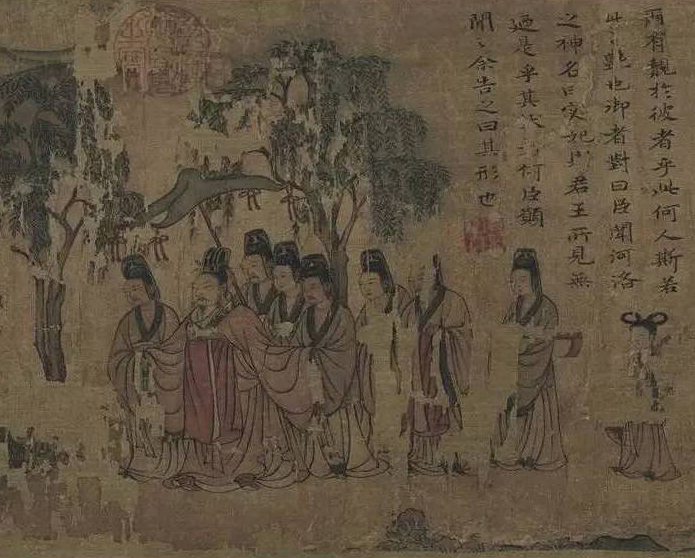 爾有覿於彼者乎此何人斯若
此之艷也御者對曰臣聞河洛
之神名曰宓妃則君王所見無
迺是乎其狀若何臣願
聞之余告之曰其形也